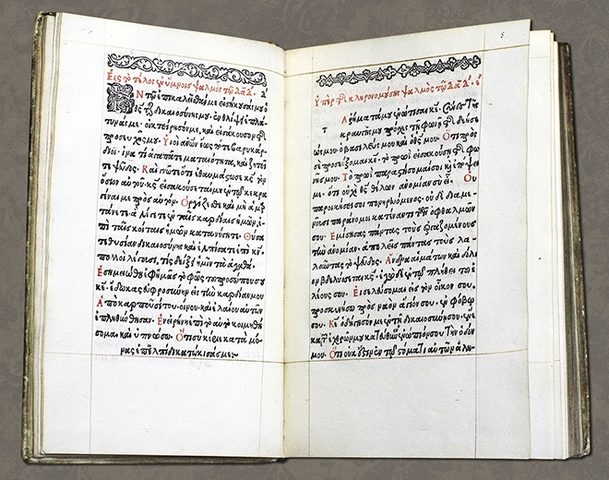 Εἰς τὸ τέλος ἐν ὕμνοις ψαλμὸς τῷ Δαδ. δ
ΕΝ τῷ ἐπικαλεῖσθαί με εἰσήκουσέ μου ὁ
θς τῆς δικαιοσύνης μου. ἐν θλίψει ἐπλά
τυνάς με. οἰκτείρησόν με, καὶ εἰσάκουσον τῆς
προσευχῆς μου. Υἱοὶ ἀνθρώπων ἕως πότε βαρυκάρ-
διοι. ἵνα τί ἀγαπᾶτε ματαιότητα, καὶ ζητεῖ
τε ψεῦδος. Καὶ γνῶτε ὅτι ἐθαυμάστωσε κς τὸν
ὅσιον αὐτοῦ. κς εἰσακούσεταί μου ἐν τῷ κεκρα
γέναι με πρὸς αὐτόν. Οργίζεσθε καὶ μὴ ἁμαρ
τάνετε. ἃ λέγετε ἐν ταῖς καρδίαις ὑμῶν, ἐ
πὶ ταῖς κοίταις ὑμῶν κατανύγητε. Θύσα
τε θυσίαν δικαιοσύνης καὶ ἐλπίσατε ἐπὶ κν.
πολλοὶ λέγουσι, τίς δείξει ἡμῖν τὰ ἀγαθά.
Εσημειώθη ἐφ' ἡμᾶς τὸ φῶς τοῦ προσώπου σου
κε. ἔδωκας εὐφροσύνην εἰς τὴν καρδίαν μου
Απὸ καρποῦ σίτου. οἴνου. καὶ ἐλαίου αὐτῶν
ἐπληθύνθησαν. Εν εἰρήνῃ ἐπὶ τὸ αὐτὸ κοιμηθή
σομαι. καὶ ὑπνώσω. Οτι σὺ κύριε κατὰ μό-
νας ἐπ' ἐλπίδι κατῴκισάς με.
Υπὲρ τῆς κληρονομούσης ψαλμὸς τῷ Δαδ. ε
Τὰ ῥήματά μου ἐνώτισαι κε. σύνες τῆς
κραυγῆς μου. πρόσχες τῇ φωνῇ τῆς δεήσε
ώς μου. ὁ βασιλεύς μου καὶ ὁ θς μου. Οτι πρὸς
σὲ προσεύξομαι κε. τὸ πρωῒ εἰσακούσῃ τῆς φω
νῆς μου. Τὸ πρωῒ παραστήσομαί σοι καὶ ἐπόψει
με. ὅτι οὐχὶ θς θέλων ἀνομίαν σὺ εἶ. Οὐ
παροικήσει σοι πονηρευόμενος. οὐδὲ διαμε-
νοῦσι παράνομοι κατέναντι τῶν ὀφθαλμῶν
σου. Εμίσησας πάντας τοὺς ἐργαζομένους
τὴν ἀνομίαν. ἀπολεῖς πάντας τοὺς λα-
λοῦντας τὸ ψεῦδος. Ανδρα αἱμάτων καὶ δόλιον
βδελύσσεται κς. ἐγὼ δὲ ἐν τῷ πλήθει τοῦ ἐ
λέους σου. Εἰσελεύσομαι εἰς τὸν οἶκόν σου.
προσκυνήσω πρὸς ναὸν ἅγιόν σου. ἐν φόβῳ
σου. Κε ὁδήγησόν με ἐν τῇ δικαιοσύνῃ σου. ἕνε
κα τῶν ἐχθρῶν μου κατεύθυνον ἐνώπιόν σου τὴν ὁδόν
μου. Οτι οὐκ ἔστιν ἐν τῷ στόματι αὐτῶν ἀλή-